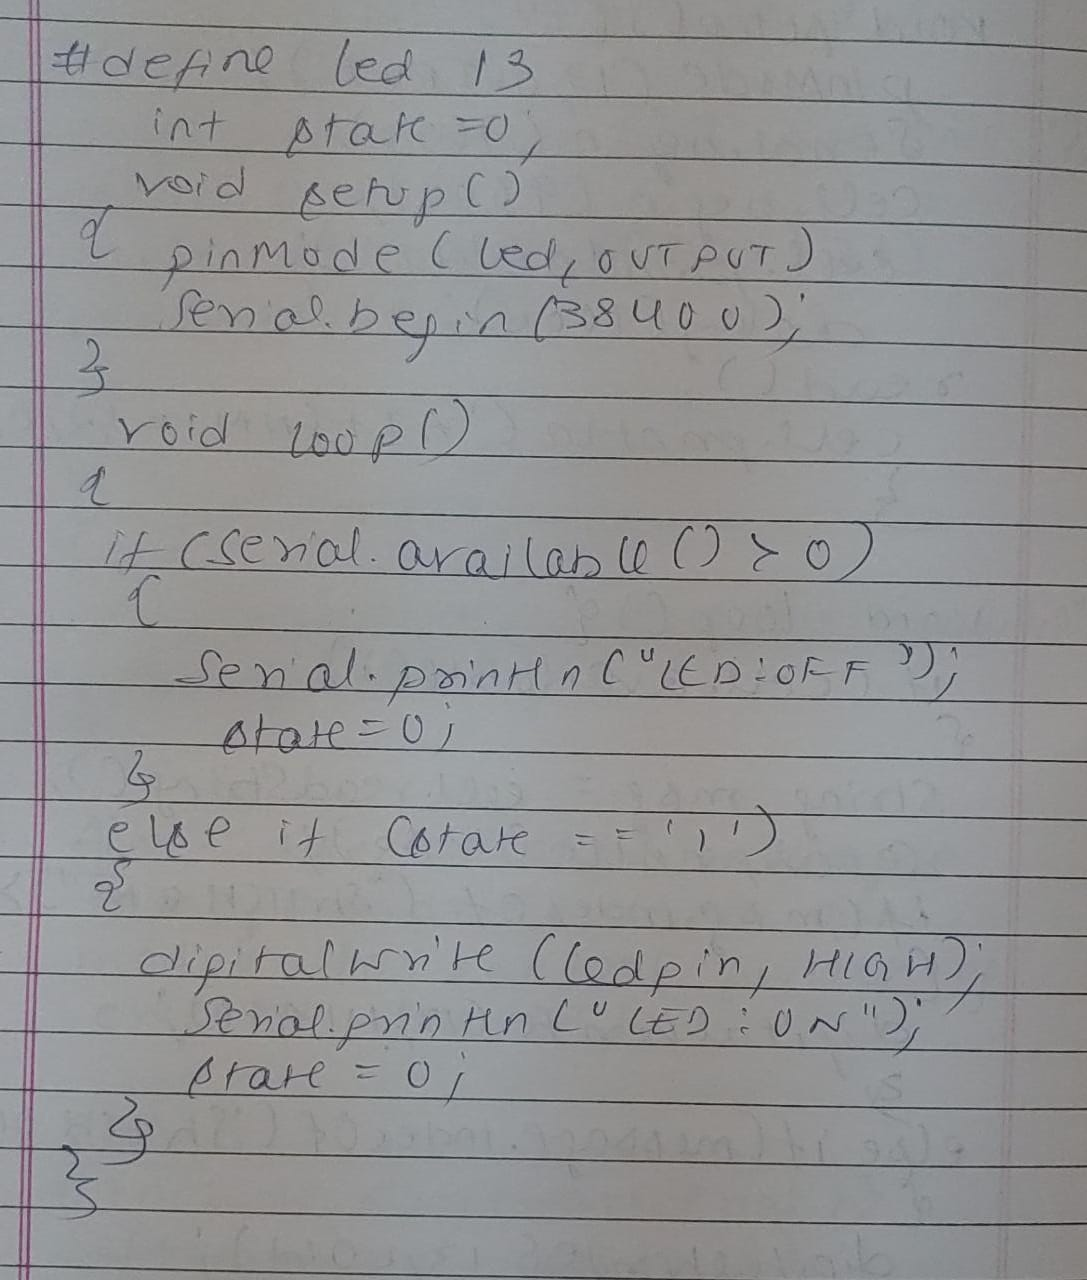 #define led 13
int state =0;
void setup()
{ pinMode (led, OUTPUT)
Serial.begin(38400);
}
void loop()
{
if (Serial.available() > 0)
{
Serial.println("LED:OFF");
state=0;
}
else if (state == '1')
{
digitalwrite (ledpin, HIGH);
Serial.println("LED: ON");
state = 0;
}
}